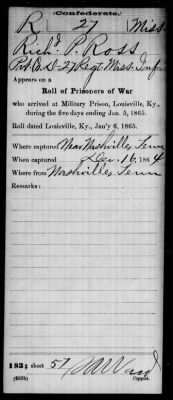 Confederate.
R 27 Miss.
Rich'd P. Ross
Pvt Co. D 27 Reg't Miss. Inf.
Appears on a
Roll of Prisoners of War
who arrived at Military Prison, Louisville, Ky.,
during the five days ending Jan. 5, 1865.
Roll dated Louisville, Ky., Jan'y 6, 1865.
Where captured Near Nashville Tenn
When captured Dec. 16, 1864
Where from Nashville Tenn
Remarks:
sheet 57
Copyist.